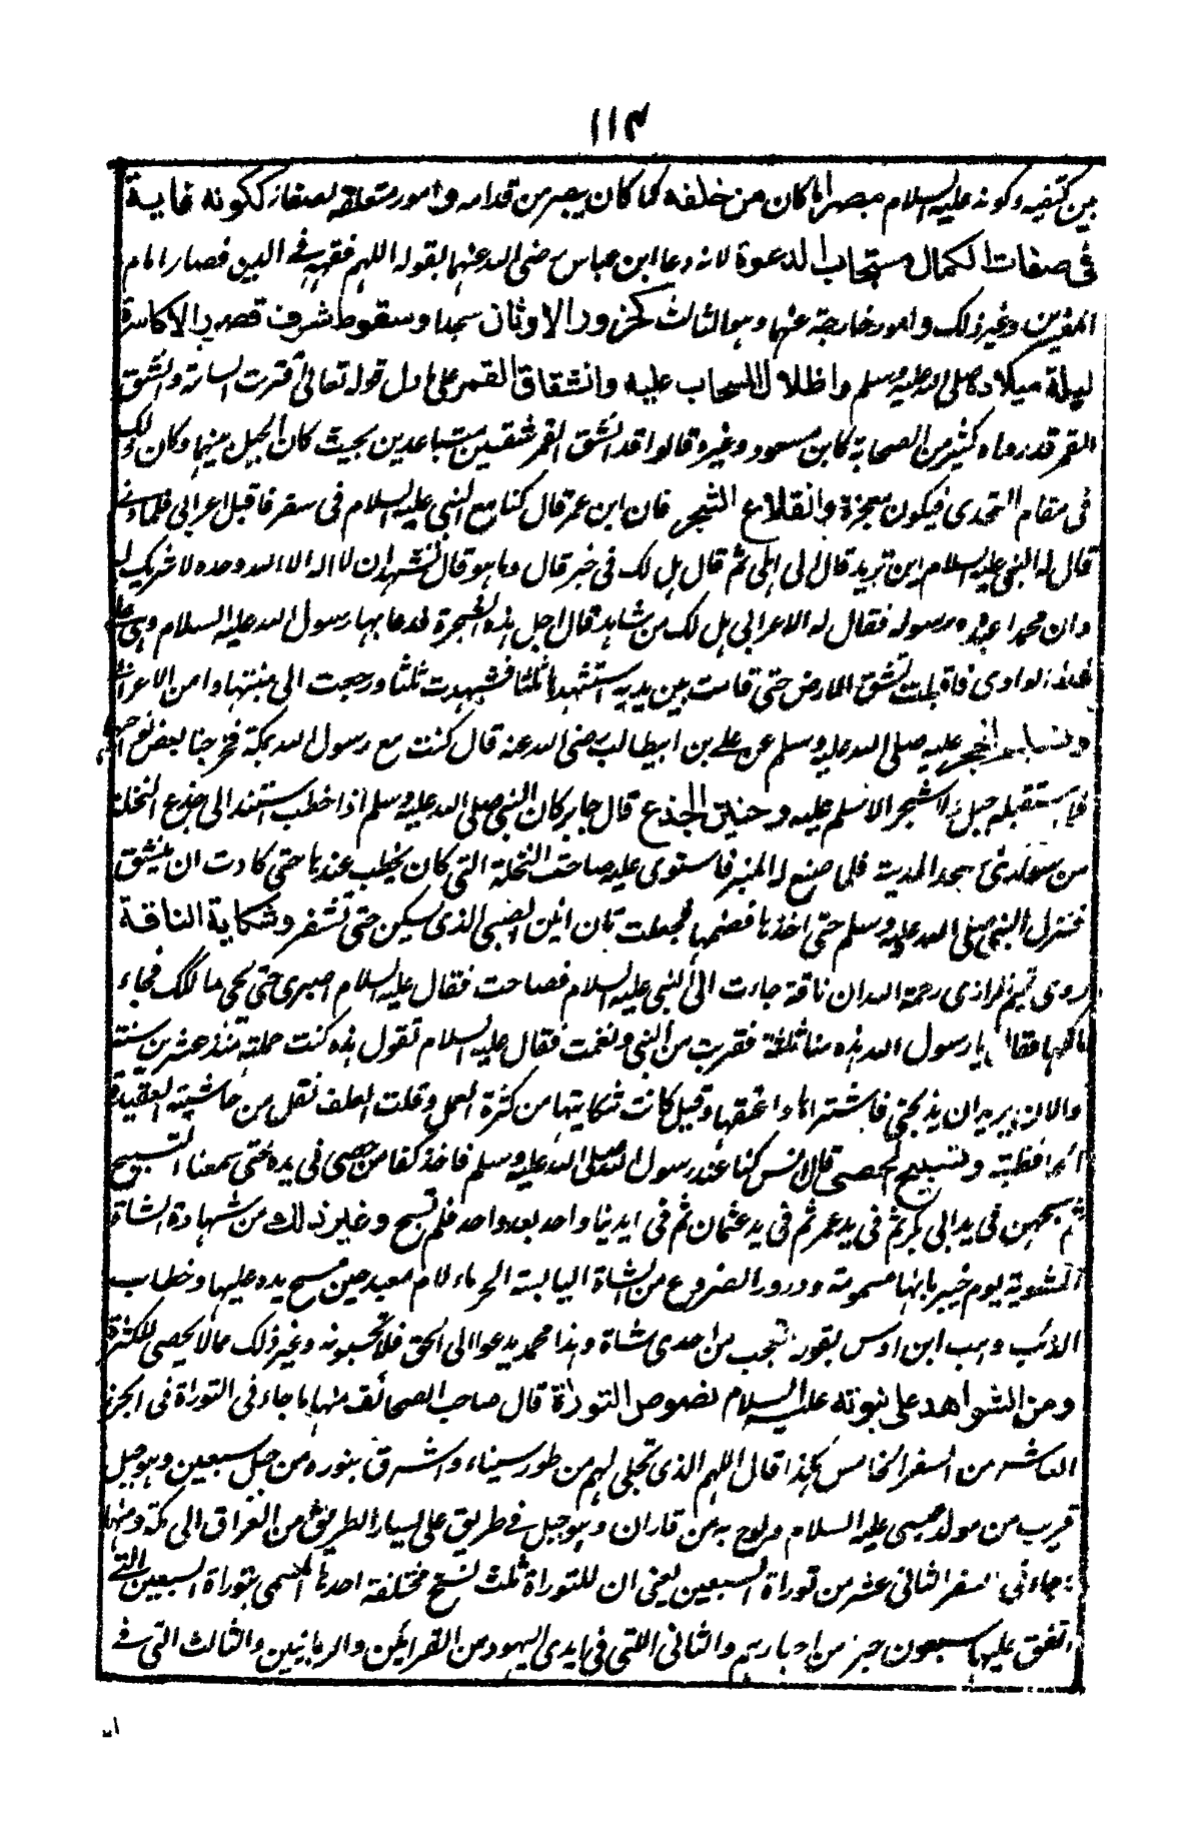 ١١٣
بين كتفيه وكونه عليه السلام مبصرا لما كان من خلفه كما كان يبصر من قدامه وامور متعلقة بصفاته ككونه غاية
فى صفات الكمال مستجاب الدعوة لانه دعا ابن عباس رضى الله عنهما بقوله اللهم فقهه فى الدين فصار امام
المفسرين وغير ذلك وامور خارجة عنها وهو الثالث كخرور الاوثان سجدا وسقوط شرف قصور الاكاسرة
ليلة ميلاده صلى الله عليه وسلم واظلال السحاب عليه وانشقاق القمر على ما دل قوله تعالى اقتربت الساعة وانشق
القمر قد رواه كثير من الصحابة كابن مسعود وغيره قالوا قد انشق القمر شقتين متباعدين بحيث كان الجبل بينهما وكان ذلك
فى مقام التحدى فيكون معجزة وانقلاع الشجر فان ابن عمر قال كنا مع النبى عليه السلام فى سفر فاقبل اعرابى فلما دنى
قال له النبى عليه السلام اين تريد قال الى اهلى ثم قال هل لك فى خير قال وما هو قال تشهد ان لا اله الا الله وحده لا شريك له
وان محمدا عبده ورسوله فقال له الاعرابى هل لك من شاهد قال اجل هذه الشجرة فدعا بها رسول الله عليه السلام وهى على
الوادى فاقبلت تشق الارض حتى قامت بين يديه استشهدها ثلثا فشهدت ثلثا ورجعت الى منبتها وامن الاعرابى
وتسليم الحجر عليه صلى الله عليه وسلم عن على بن ابيطالب رضى الله عنه قال كنت مع رسول الله بمكة فخرجنا بعض نواحيها
فما استقبله جبل ولا شجر الا سلم عليه وحنين الجذع قال جابر كان النبى صلى الله عليه وسلم اذا خطب استند الى جذع النخلة
من سوارى مسجد المدينة فلما صنع له المنبر فاستوى عليه صاحت النخلة التى كان يخطب عندها حتى كادت ان ينشق
فنزل النبى صلى الله عليه وسلم حتى اخذها فضمها فجعلت تان انين الصبى الذى يسكن حتى وشكاية الناقة
روى تميم الرازى رحمة الله ان ناقة جاءت الى النبى عليه السلام فصاحت فقال عليه السلام اصبرى حتى يجى مالكك فجاء
مالكها فقال يا رسول الله هذه منا فقربت من النبى ونغمت فقال عليه السلام تقول هذه كنت حملته منذ عشرين سنة
والان يريد ان يذبحنى فاشتراها واعتقها وقيل كانت شكايتها من كثرة العمل وقلت العلف نقل من حاشية العقيدة
الحافظية وتسبيح الحصى قال انس كنا عند رسول الله صلى الله عليه وسلم فاخذ كفا من حصى فى يده حتى سمعنا التسبيح
ثم صبهن فى يد ابى بكر ثم فى يد عمر ثم فى يد عثمان ثم فى ايدينا واحد بعد واحد فلم تسبح وغير ذلك من شهادة الشاة
المشوية يوم خيبر بانها مسمومة ودرور الضروع من الشاة اليابسة الجرباء لام معبد حين مسح يده عليها وخطاب
الذئب وهب ابن اوس بقوله تعجب من اخذى شاة وهذا محمد يدعوا الى الحق فلا تجيبونه وغير ذلك مما لا يحصى لكثرة
ومن الشواهد على نبوته عليه السلام نصوص التوراة قال صاحب الصحائف منها ما جاء فى التوراة فى الجزء
العاشر من السفر الخامس هكذا قال اللهم الذى تجلى لهم من طور سيناء واشرق بنوره من جبل سبعين وهو جبل
قريب من مولد عيسى عليه السلام ولوح به من فاران وهو جبل فى طريق على يسار الطريق من العراق الى مكة ومنها
ما جاء فى السفر الثانى عشر من توراة السبعين يعنى ان للتوراة ثلث نسخ مختلفة احدها المسمى بتوراة السبعين التى
اتفق عليها سبعون حبر من احبارهم والثانى اللتى فى ايدى اليهود من القرائين والربانيين والثالث التى فى